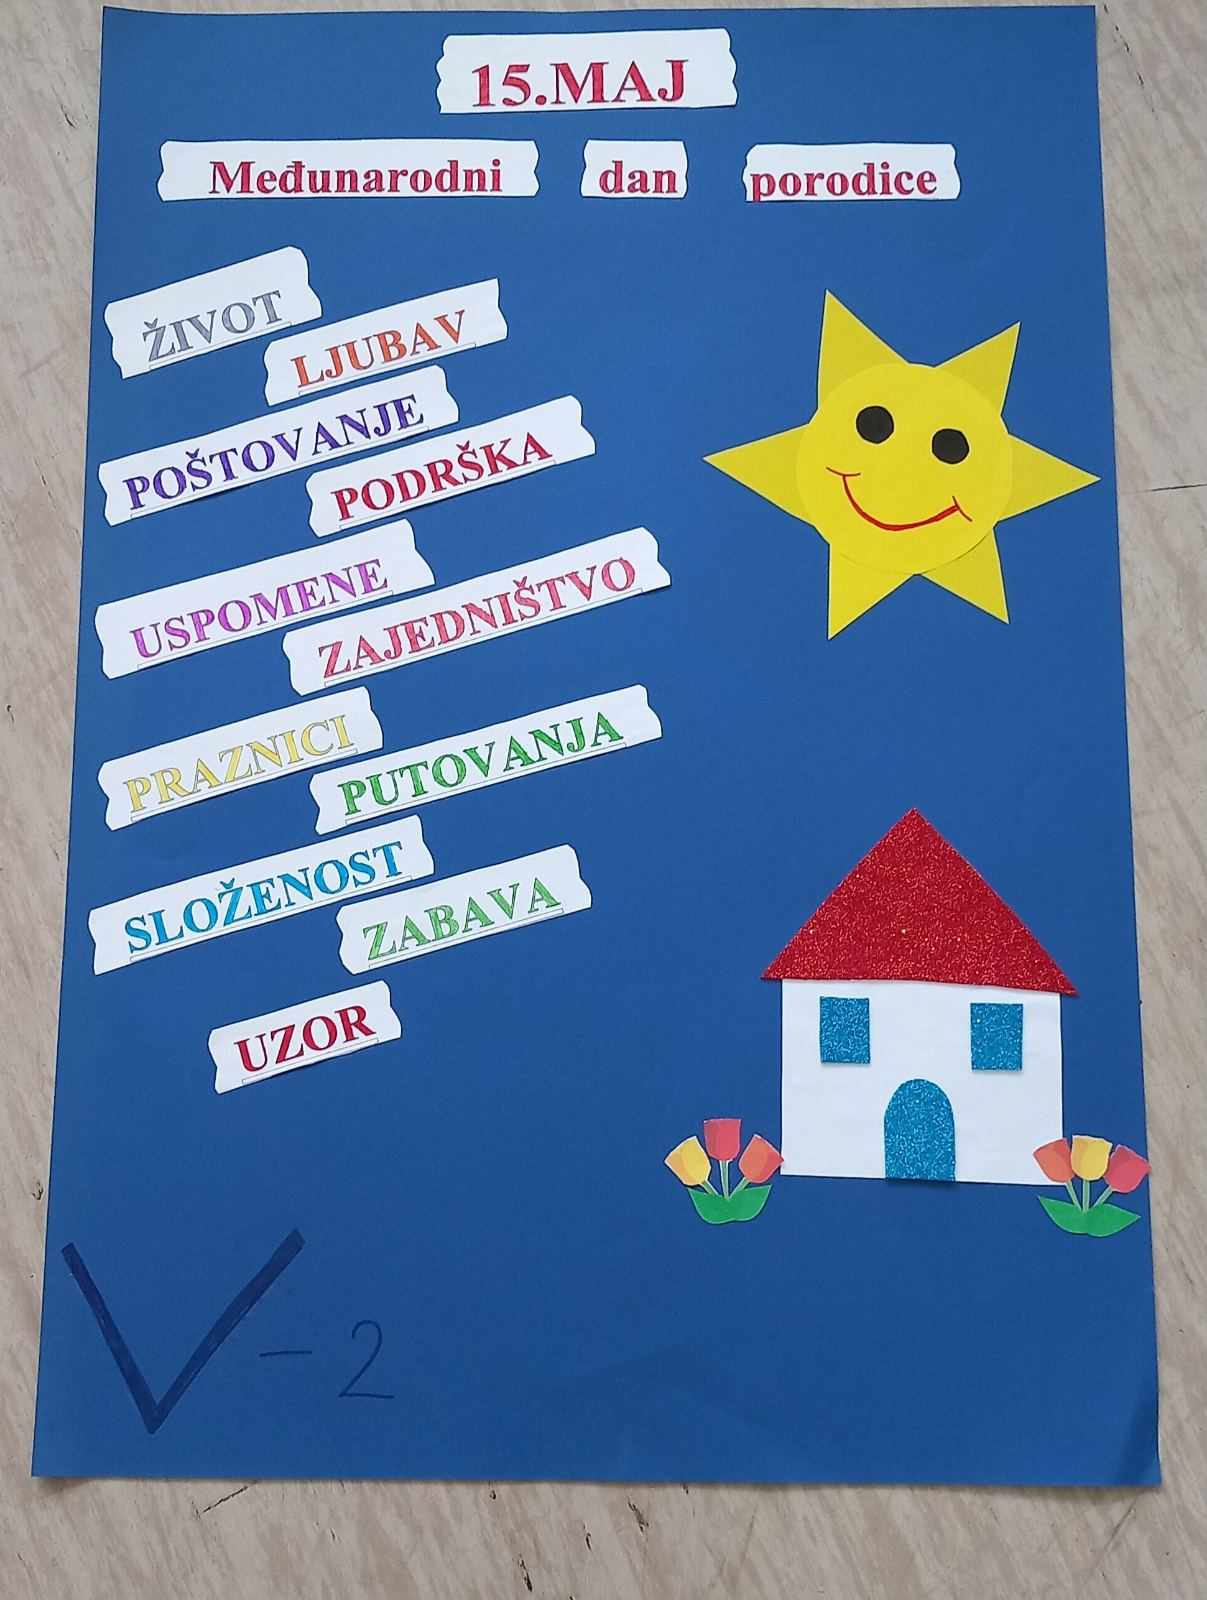 15.MAJ
Međunarodni dan porodice
ŽIVOT
LJUBAV
POŠTOVANJE
PODRŠKA
USPOMENE
ZAJEDNIŠTVO
PRAZNICI
PUTOVANJA
SLOŽENOST
ZABAVA
UZOR
V-2